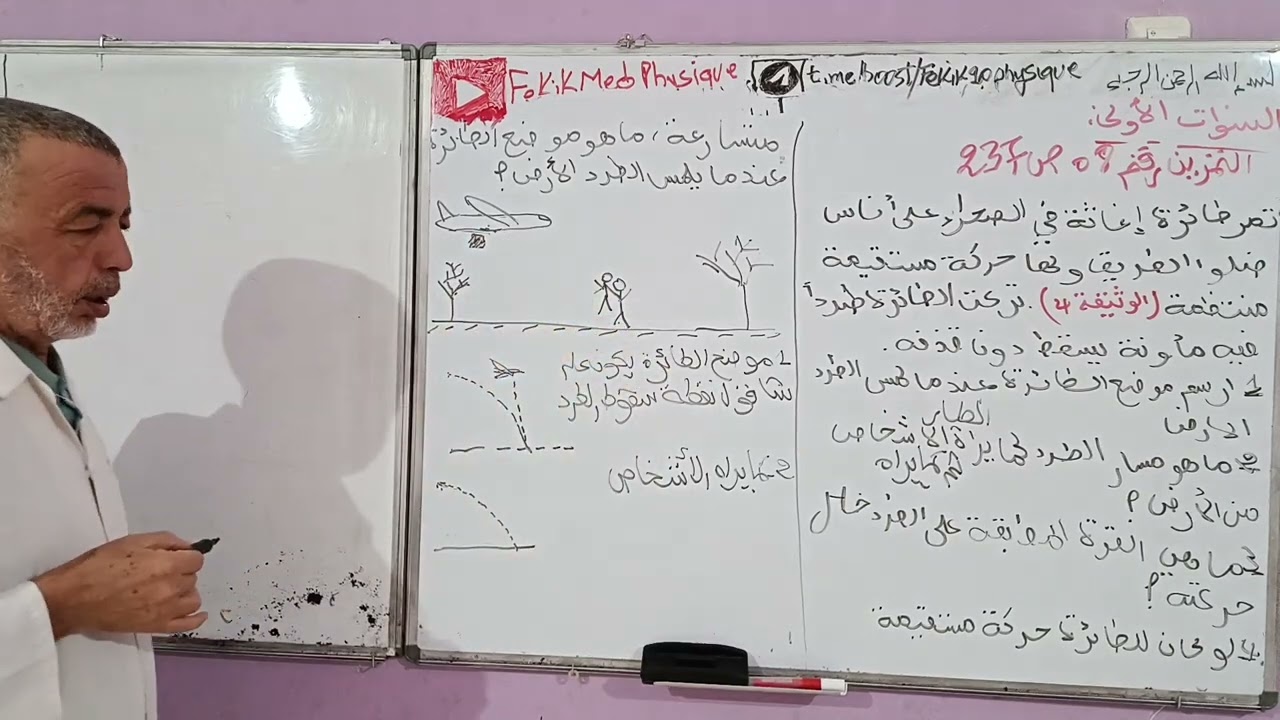 FekiK Med Physique
t.me/boost/Fekik90physique
بسم الله الرحمن الرحيم
السنوات الأولى:
التمرين رقم 09 ص 237
تمر طائرة إغاثة في الصحراء على أناس
ضلوا الطريق ولها حركة مستقيمة
منتظمة (الوثيقة 4). تركت الطائرة طرداً
فيه مأونة يسقط دون قذفه.
1 ارسم موضع الطائرة عندما لمس الطرد
الأرض
2 ما هو مسار الطرد كما يراه الطيار
ثم كما يراه الأشخاص
من الأرض؟
3 ما هي القوة المطبقة على الطرد خلال
حركته؟
4 لو كان للطائرة حركة مستقيمة
متسارعة، ما هو موضع الطائرة
عندما يلمس الطرد الأرض؟
1 موضع الطائرة يكون على
شاقول نقطة سقوط الطرد
كما يراه الأشخاص